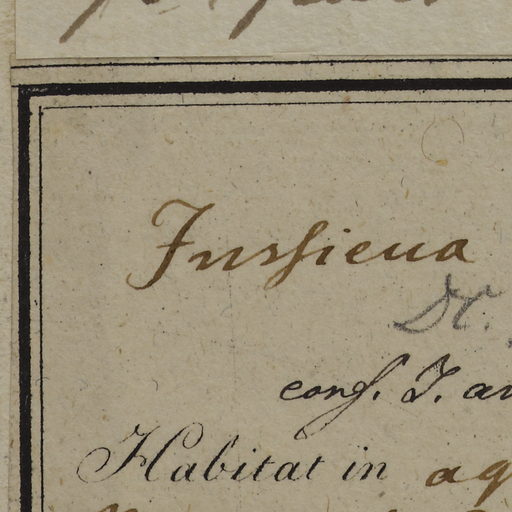 Jussieua
DC.
conf. J. an
Habitat in aq